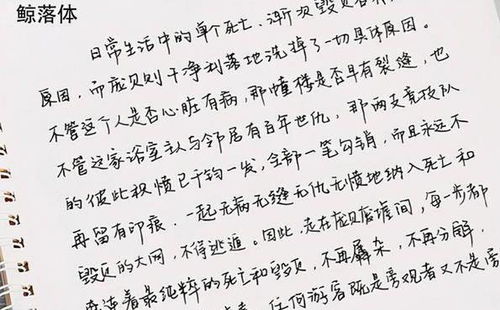 鲸落体
日常生活中的单个死亡、渐次毁灭各有
原因，而庞贝则干净利落地洗掉了一切具体原因。
不管这个人是否心脏有病，那幢楼是否早有裂缝，也
不管这家浴室主人与邻居有百年世仇，那两支竞技队
的彼此积愤已千钧一发，全部一笔勾销，而且永远不
再留有印痕。一起无病无缝无仇无愤地纳入死亡和
毁灭的大网，不得逃遁。因此，走在庞贝废墟间，每一步都
连着最纯粹的死亡和毁灭，不再羼杂，不再分解，
任何游客既是旁观者又不是旁